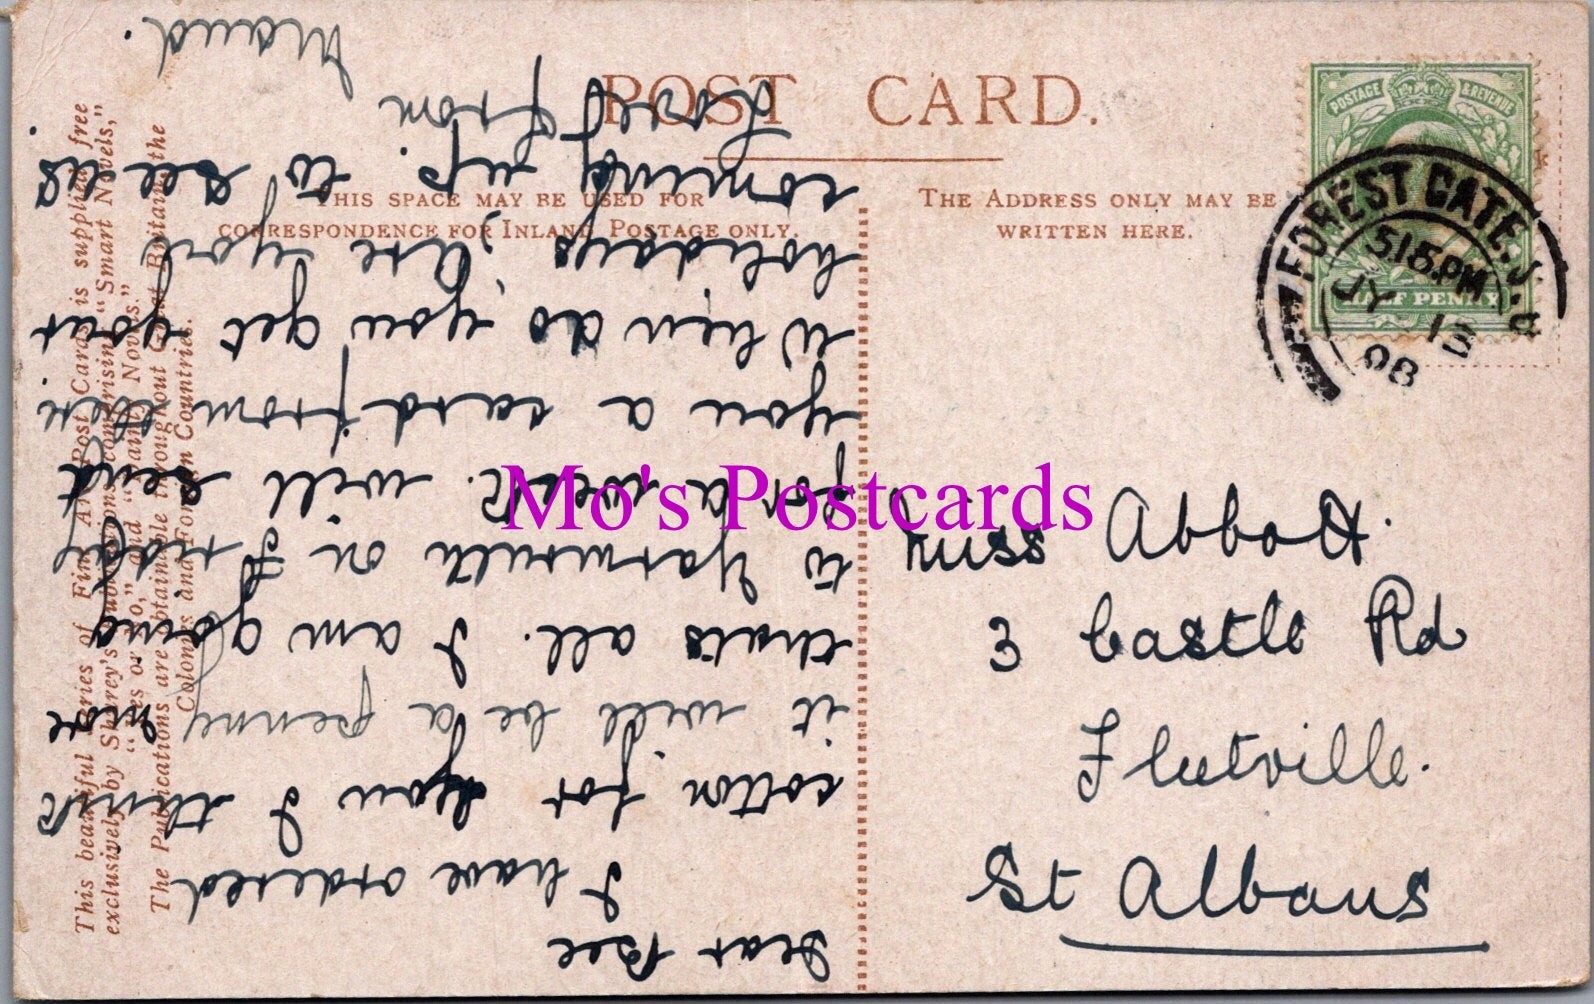 POST CARD.
THIS SPACE MAY BE USED FOR
CORRESPONDENCE FOR INLAND POSTAGE ONLY.
THE ADDRESS ONLY MAY BE
WRITTEN HERE.
POSTAGE & REVENUE
HALF PENNY
FOREST GATE. S.O
5.15.PM
JY 13
08
This beautiful Series of Fine Art Post Cards is supplied free
exclusively by Shurey's Publications, comprising "Smart Novels,"
"Yes or No," and "Dainty Novels."
The Publications are obtainable throughout Great Britain, the
Colonies and Foreign Countries.
Dear Bee
I have ordered
cotton for you I think
it will be a penny more
thats all. I am going
to Yarmouth on Friday
for a week. will send
you a card from there.
When do you get your
holidays, are you
coming up to see us.
Love from
Maud.
Miss Abbott.
3 Castle Rd
Fleetville.
St Albans
Mo's Postcards